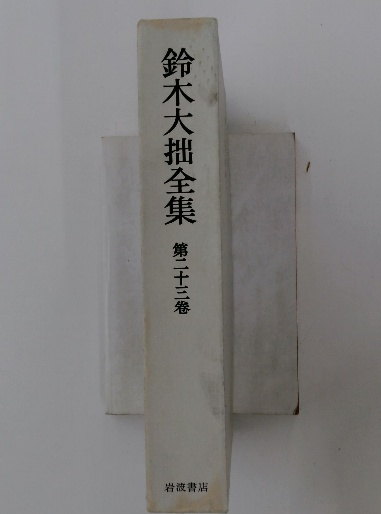 鈴木大拙全集
第二十三巻
岩波書店